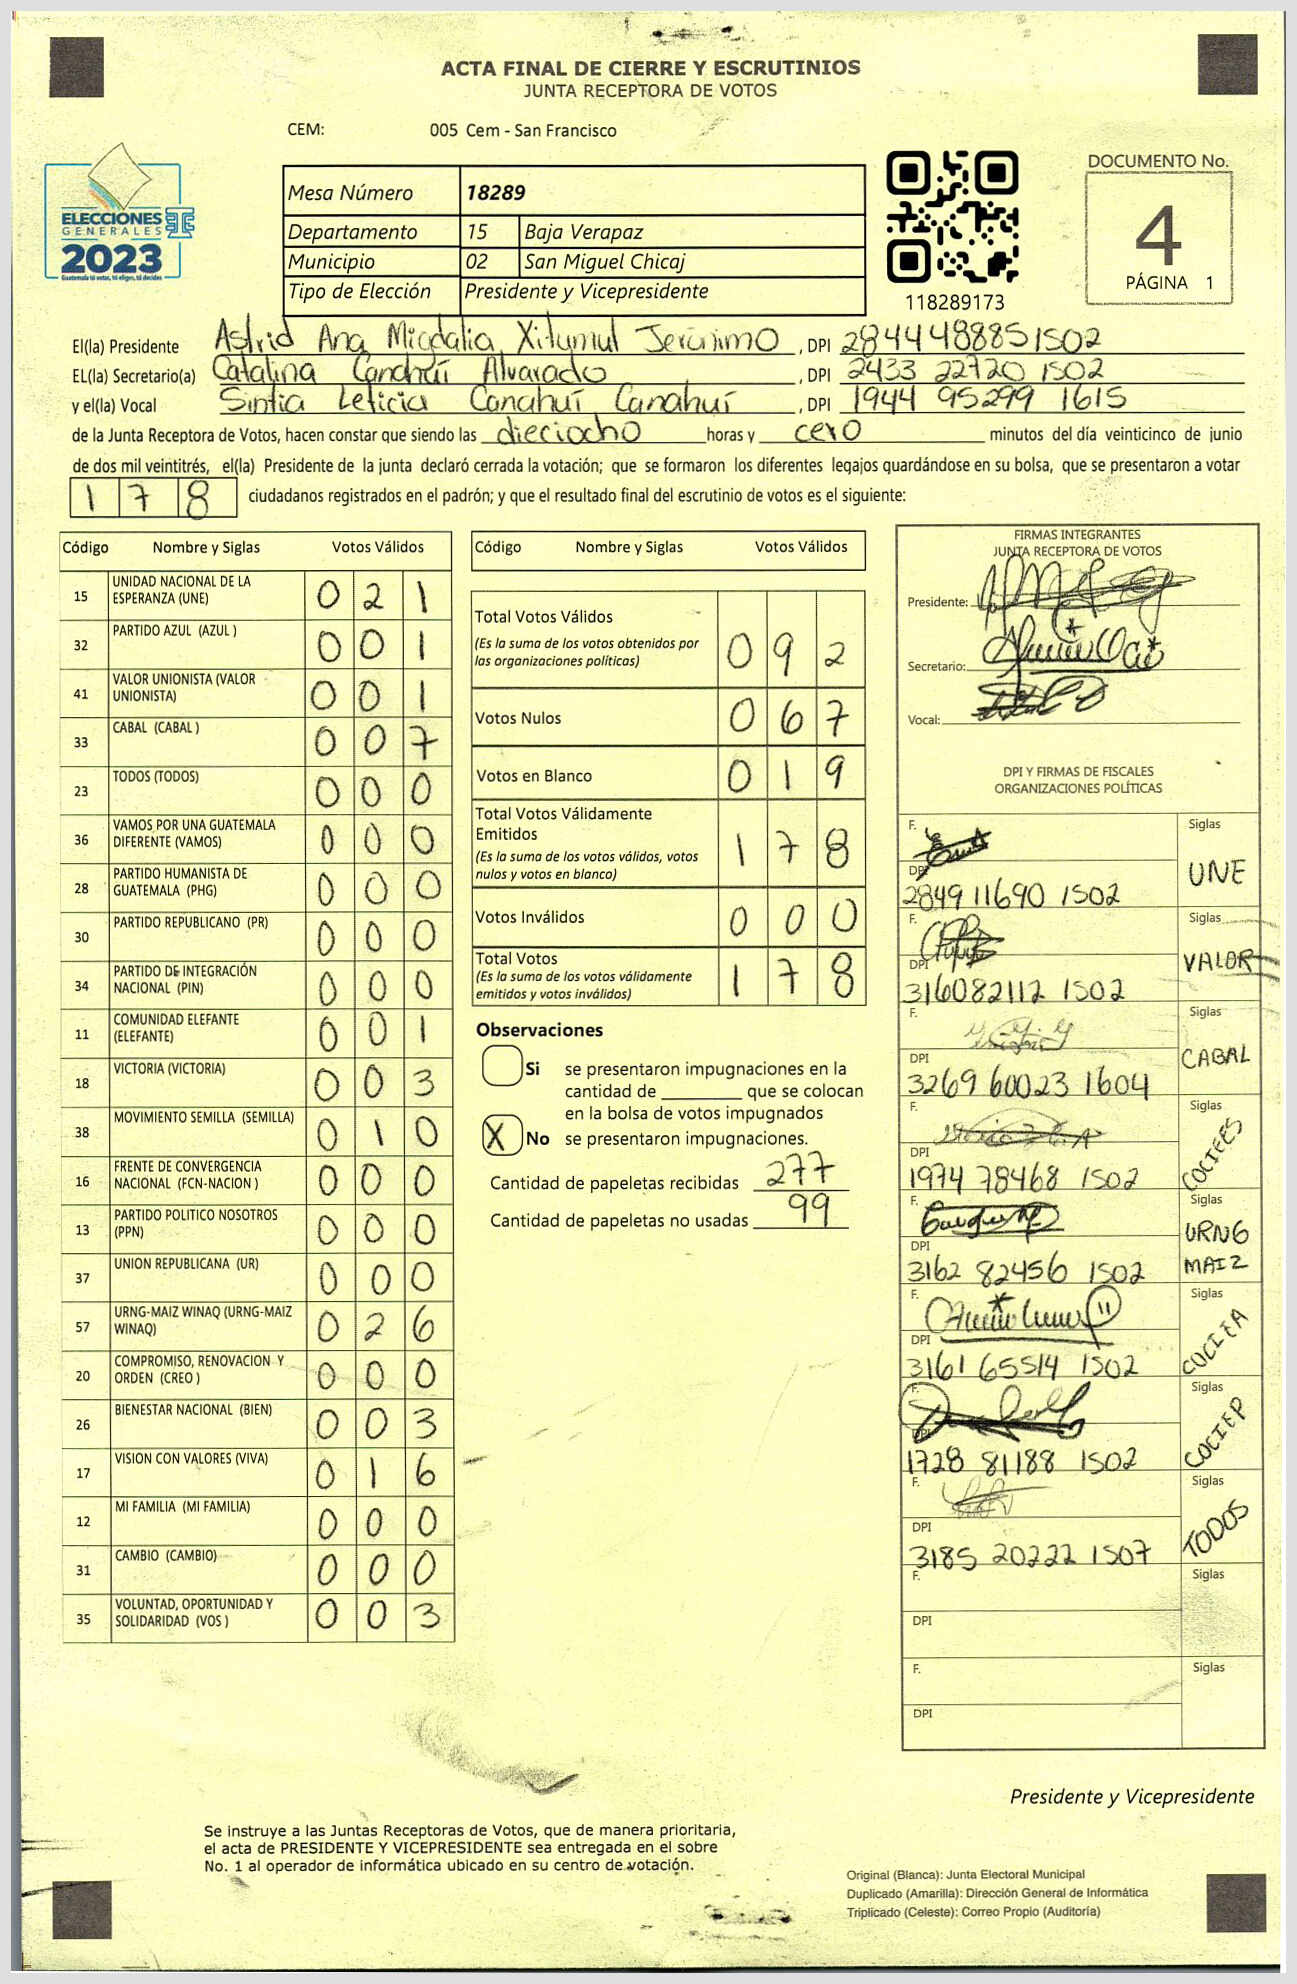 ACTA FINAL DE CIERRE Y ESCRUTINIOS
JUNTA RECEPTORA DE VOTOS
CEM: 005 Cem - San Francisco
ELECCIONES
GENERALES
2023
Guatemala tú votas, tú eliges, tú decides
Mesa Número 18289
Departamento 15 Baja Verapaz
Municipio 02 San Miguel Chicaj
Tipo de Elección Presidente y Vicepresidente
118289173
DOCUMENTO No.
4
PÁGINA 1
El(la) Presidente Astrid Ana Migdalia Xitumul Jerónimo, DPI 2844488851502
EL(la) Secretario(a) Catalina Canahuí Alvarado, DPI 2433 22720 1502
y el(la) Vocal Sintia Leticia Canahuí Canahuí, DPI 1944 95299 1615
de la Junta Receptora de Votos, hacen constar que siendo las dieciocho horas y cero minutos del día veinticinco de junio
de dos mil veintitrés, el(la) Presidente de la junta declaró cerrada la votación; que se formaron los diferentes legajos guardándose en su bolsa, que se presentaron a votar
178 ciudadanos registrados en el padrón; y que el resultado final del escrutinio de votos es el siguiente:
Código Nombre y Siglas Votos Válidos
15 UNIDAD NACIONAL DE LA ESPERANZA (UNE) 0 2 1
32 PARTIDO AZUL (AZUL ) 0 0 1
41 VALOR UNIONISTA (VALOR UNIONISTA) 0 0 1
33 CABAL (CABAL ) 0 0 7
23 TODOS (TODOS) 0 0 0
36 VAMOS POR UNA GUATEMALA DIFERENTE (VAMOS) 0 0 0
28 PARTIDO HUMANISTA DE GUATEMALA (PHG) 0 0 0
30 PARTIDO REPUBLICANO (PR) 0 0 0
34 PARTIDO DE INTEGRACIÓN NACIONAL (PIN) 0 0 0
11 COMUNIDAD ELEFANTE (ELEFANTE) 0 0 1
18 VICTORIA (VICTORIA) 0 0 3
38 MOVIMIENTO SEMILLA (SEMILLA) 0 1 0
16 FRENTE DE CONVERGENCIA NACIONAL (FCN-NACION ) 0 0 0
13 PARTIDO POLITICO NOSOTROS (PPN) 0 0 0
37 UNION REPUBLICANA (UR) 0 0 0
57 URNG-MAIZ WINAQ (URNG-MAIZ WINAQ) 0 2 6
20 COMPROMISO, RENOVACION Y ORDEN (CREO ) 0 0 0
26 BIENESTAR NACIONAL (BIEN) 0 0 3
17 VISION CON VALORES (VIVA) 0 1 6
12 MI FAMILIA (MI FAMILIA) 0 0 0
31 CAMBIO (CAMBIO) 0 0 0
35 VOLUNTAD, OPORTUNIDAD Y SOLIDARIDAD (VOS ) 0 0 3
Código Nombre y Siglas Votos Válidos
Total Votos Válidos
(Es la suma de los votos obtenidos por
las organizaciones políticas) 0 9 2
Votos Nulos 0 6 7
Votos en Blanco 0 1 9
Total Votos Válidamente
Emitidos
(Es la suma de los votos válidos, votos
nulos y votos en blanco) 1 7 8
Votos Inválidos 0 0 0
Total Votos
(Es la suma de los votos válidamente
emitidos y votos inválidos) 1 7 8
Observaciones
Si se presentaron impugnaciones en la
cantidad de ________ que se colocan
en la bolsa de votos impugnados
X No se presentaron impugnaciones.
Cantidad de papeletas recibidas 277
Cantidad de papeletas no usadas 99
FIRMAS INTEGRANTES
JUNTA RECEPTORA DE VOTOS
Presidente:
Secretario:
Vocal:
DPI Y FIRMAS DE FISCALES
ORGANIZACIONES POLÍTICAS
F. Siglas
DPI UNE
2849 11690 1502
F. Siglas
DPI VALOR
316082112 1502
F. Siglas
DPI CABAL
3269 60023 1604
F. Siglas
DPI COCIEES
1974 78468 1502
F. Siglas
DPI URNG MAIZ
3162 82456 1502
F. Siglas
DPI COCIEA
3161 65514 1502
F. Siglas
DPI COCIEP
1728 81188 1502
F. Siglas
DPI TODOS
3185 20222 1507
F. Siglas
DPI
F. Siglas
DPI
Presidente y Vicepresidente
Se instruye a las Juntas Receptoras de Votos, que de manera prioritaria,
el acta de PRESIDENTE Y VICEPRESIDENTE sea entregada en el sobre
No. 1 al operador de informática ubicado en su centro de votación.
Original (Blanca): Junta Electoral Municipal
Duplicado (Amarilla): Dirección General de Informática
Triplicado (Celeste): Correo Propio (Auditoría)